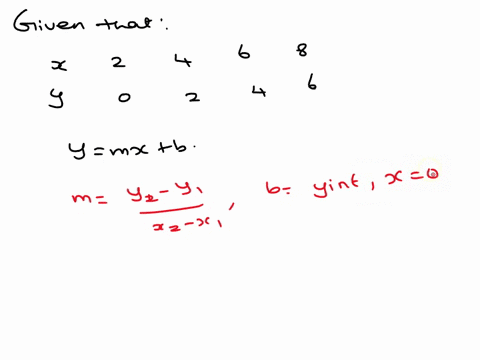 Given that:
x 2 4 6 8
y 0 2 4 6
y = mx + b.
m = y₂ - y₁ / x₂ - x₁ , b = yint , x = 0